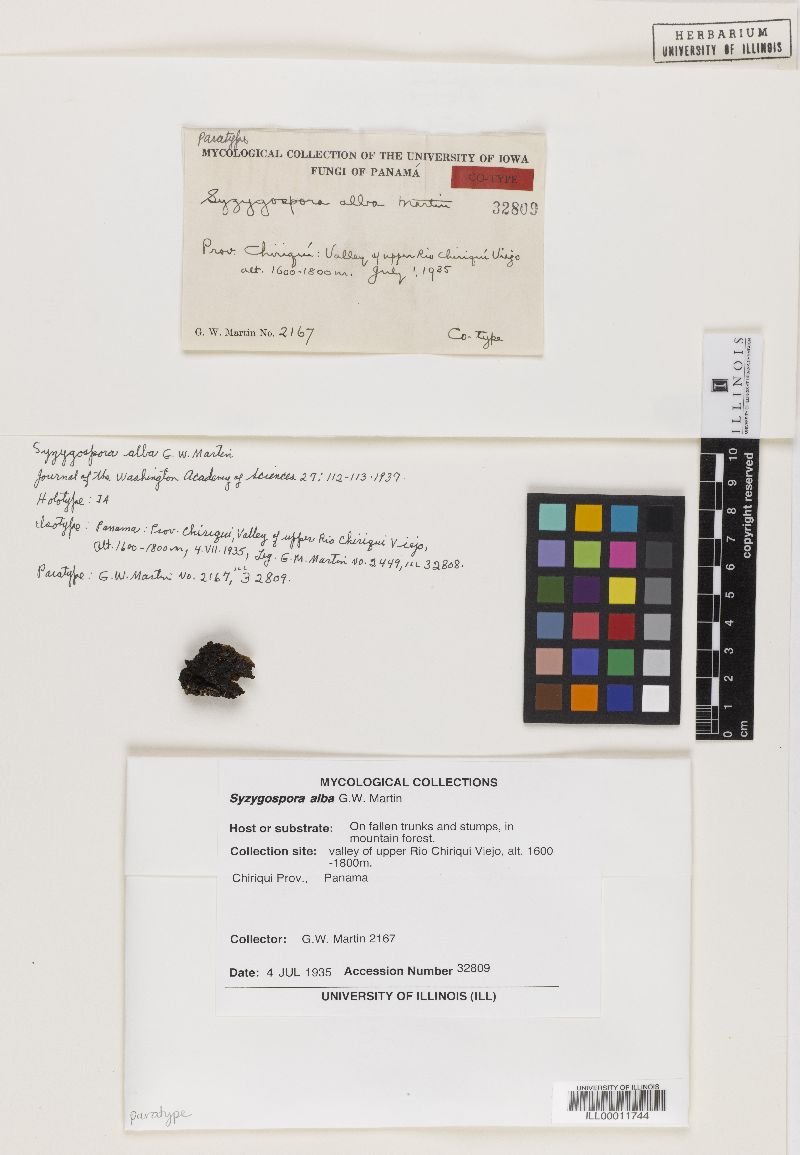 HERBARIUM
UNIVERSITY OF ILLINOIS
Paratype
MYCOLOGICAL COLLECTION OF THE UNIVERSITY OF IOWA
FUNGI OF PANAMÁ
CO-TYPE
Syzygospora alba Martin
32809
Prov. Chiriquí: Valley of upper Rio Chiriquí Viejo
alt. 1600-1800 m. July 1, 1935
G. W. Martin No. 2167
Co-type
ILLINOIS
Syzygospora alba G.W. Martin
Journal of the Washington Academy of Sciences 27: 112-113. 1937.
Holotype: IA
Isotype: Panama: Prov. Chiriqui, Valley of upper Rio Chiriqui Viejo,
alt. 1600-1800 m, 4.VII.1935, Leg. G.M. Martin No. 2449, ILL 32808.
Paratype: G.W. Martin No. 2167, ILL 32809.
copyright reserved
0 1 2 3 4 5 6 7 8 9 10
cm
MYCOLOGICAL COLLECTIONS
Syzygospora alba G.W. Martin
Host or substrate: On fallen trunks and stumps, in
mountain forest.
Collection site: valley of upper Rio Chiriqui Viejo, alt. 1600
-1800m.
Chiriqui Prov., Panama
Collector: G.W. Martin 2167
Date: 4 JUL 1935 Accession Number 32809
UNIVERSITY OF ILLINOIS (ILL)
UNIVERSITY OF ILLINOIS
ILL00011744
paratype